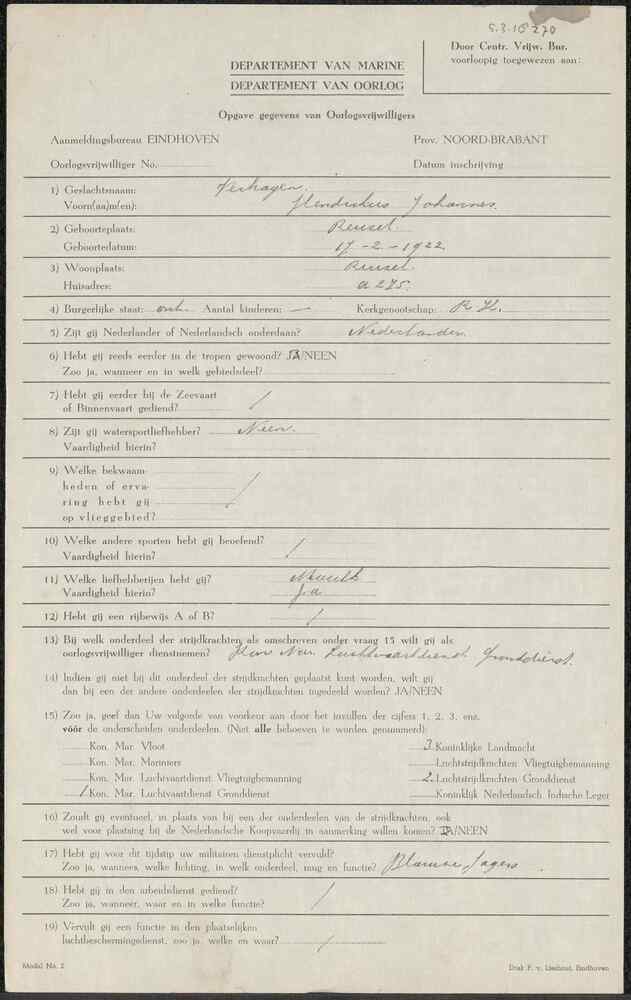 G.3.15 270
Door Centr. Vrijw. Bur.
voorloopig toegewezen aan:
DEPARTEMENT VAN MARINE
DEPARTEMENT VAN OORLOG
Opgave gegevens van Oorlogsvrijwilligers
Aanmeldingsbureau EINDHOVEN Prov. NOORD-BRABANT
Oorlogsvrijwilliger No. Datum inschrijving
1) Geslachtsnaam: Verhagen.
Voorn(aa)m(en): Hendrikus Johannes.
2) Geboorteplaats: Reusel.
Geboortedatum: 17-2-1922.
3) Woonplaats: Reusel.
Huisadres: a 275.
4) Burgerlijke staat: ong. Aantal kinderen: — Kerkgenootschap: R K.
5) Zijt gij Nederlander of Nederlandsch onderdaan? Nederlander.
6) Hebt gij reeds eerder in de tropen gewoond? JA/NEEN
Zoo ja, wanneer en in welk gebiedsdeel?
7) Hebt gij eerder bij de Zeevaart
of Binnenvaart gediend? /
8) Zijt gij watersportliefhebber? Neen.
Vaardigheid hierin?
9) Welke bekwaam-
heden of erva-
ring hebt gij /
op vlieggebied?
10) Welke andere sporten hebt gij beoefend?
Vaardigheid hierin? /
11) Welke liefhebberijen hebt gij? Muziek
Vaardigheid hierin? ja
12) Hebt gij een rijbewijs A of B? /
13) Bij welk onderdeel der strijdkrachten, als omschreven onder vraag 15 wilt gij als
oorlogsvrijwilliger dienstnemen? Kon Mar. Luchtvaartdienst Gronddienst.
14) Indien gij niet bij dit onderdeel der strijdkrachten geplaatst kunt worden, wilt gij
dan bij een der andere onderdeelen der strijdkrachten ingedeeld worden? JA/NEEN
15) Zoo ja, geef dan Uw volgorde van voorkeur aan door het invullen der cijfers 1, 2, 3, enz.
vóór de onderscheiden onderdeelen. (Niet alle behoeven te worden genummerd):
Kon. Mar. Vloot 3 Koninklijke Landmacht
Kon. Mar. Mariniers Luchtstrijdkrachten Vliegtuigbemanning
Kon. Mar. Luchtvaartdienst Vliegtuigbemanning 2 Luchtstrijdkrachten Gronddienst
1 Kon. Mar. Luchtvaartdienst Gronddienst Koninklijk Nederlandsch Indische Leger
16) Zoudt gij eventueel, in plaats van bij een der onderdeelen van de strijdkrachten, ook
wel voor plaatsing bij de Nederlandsche Koopvaardij in aanmerking willen komen? JA/NEEN
17) Hebt gij vóór dit tijdstip uw militairen dienstplicht vervuld?
Zoo ja, wanneer, welke lichting, in welk onderdeel, rang en functie? Blauwe Jagers
18) Hebt gij in den arbeidsdienst gediend?
Zoo ja, wanneer, waar en in welke functie? /
19) Vervult gij een functie in den plaatselijken
luchtbeschermingsdienst, zoo ja, welke en waar? /
Model No. 2 Druk F. v. Lieshout, Eindhoven